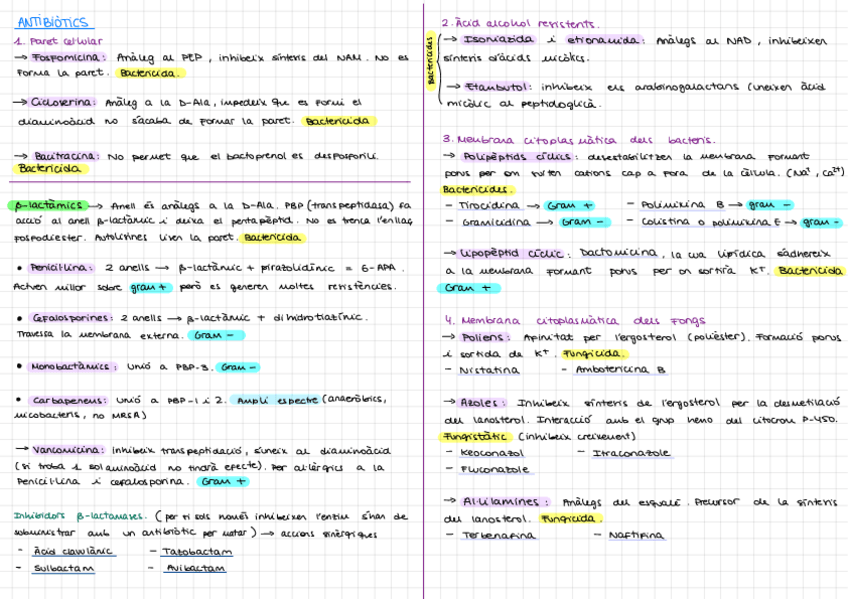 ANTIBIÒTICS
1. Paret cel·lular
→ Fosfomicina: Anàleg al PEP, inhibeix síntesi del NAM. No es
forma la paret. Bactericida.
→ Cicloserina: Anàleg a la D-Ala, impedeix que es formi el
diaminoàcid no s'acaba de formar la paret. Bactericida
→ Bacitracina: No permet que el bactoprenol es desfosforili.
Bactericida
β-lactàmics → Anell és anàlegs a la D-Ala. PBP (transpeptidasa) fa
acció al anell β-lactàmic i deixa el pentapèptid. No es trenca l'enllaç
fosfodiester. Autolisines lisen la paret. Bactericida
• Penicil·lina: 2 anells → β-lactàmic + pirazolidínic = 6-APA.
Actuen millor sobre gram + però es generen moltes resistències.
• Cefalosporines: 2 anells → β-lactàmic + dihidrotiazínic.
Travessa la membrana externa. Gram -
• Monobactàmics: Unió a PBP-3. Gram -
• Carbapenems: Unió a PBP-1 i 2. Ampli espectre (anaeròbics,
micobacteris, no MRSA)
→ Vancomicina: inhibeix transpeptidació, s'uneix al diaminoàcid
(si troba 1 sol aminoàcid no tindrà efecte). Per al·lèrgics a la
Penicil·lina i cefalosporina. Gram +
Inhibidors β-lactamases. (per si sols només inhibeixen l'enzim s'han de
subministrar amb un antibiòtic per matar) → accions sinèrgiques
- Àcid clavulànic - Tazobactam
- Sulbactam - Avibactam
2. Àcid alcohol resistents.
Bactericides
→ Isoniazida i etionamida: Anàlegs al NAD, inhibeixen
síntesis d'àcids micòlics.
→ Etambutol: inhibeix els arabinogalactans (uneixen àcid
micòlic al peptidoglicà.
3. Membrana citoplasmàtica dels bacteris.
→ Polipèptids cíclics: desestabilitzen la membrana formant
porus per on surten cations cap a fora de la cèl·lula. (Na⁺, Ca²⁺)
Bactericides.
- Tirocidina → Gram + - Polimixina B → gram -
- Gramicidina → Gram - - Colistina o polimixina E → gram -
→ Lipopèptid cíclic: Dactomicina, la cua lipídica s'adhereix
a la membrana formant porus per on sortirà K⁺. Bactericida
Gram +
4. Membrana citoplasmàtica dels Fongs
→ Poliens: Afinitat per l'ergosterol (polièster). Formació porus
i sortida de K⁺. Fungicida.
- Nistatina - Ambotericina B
→ Azoles: Inhibeix síntesis de l'ergosterol per la desmetilació
del lanosterol. Interacció amb el grup hemo del citocrom P-450.
Fungistàtic (inhibeix creixement)
- Keoconazol - Itraconazole
- Fluconazole
→ Al·lilamines: Anàlegs del esqualè. Precursor de la síntesis
del lanosterol. Fungicida.
- Terbenafina - Naftifina